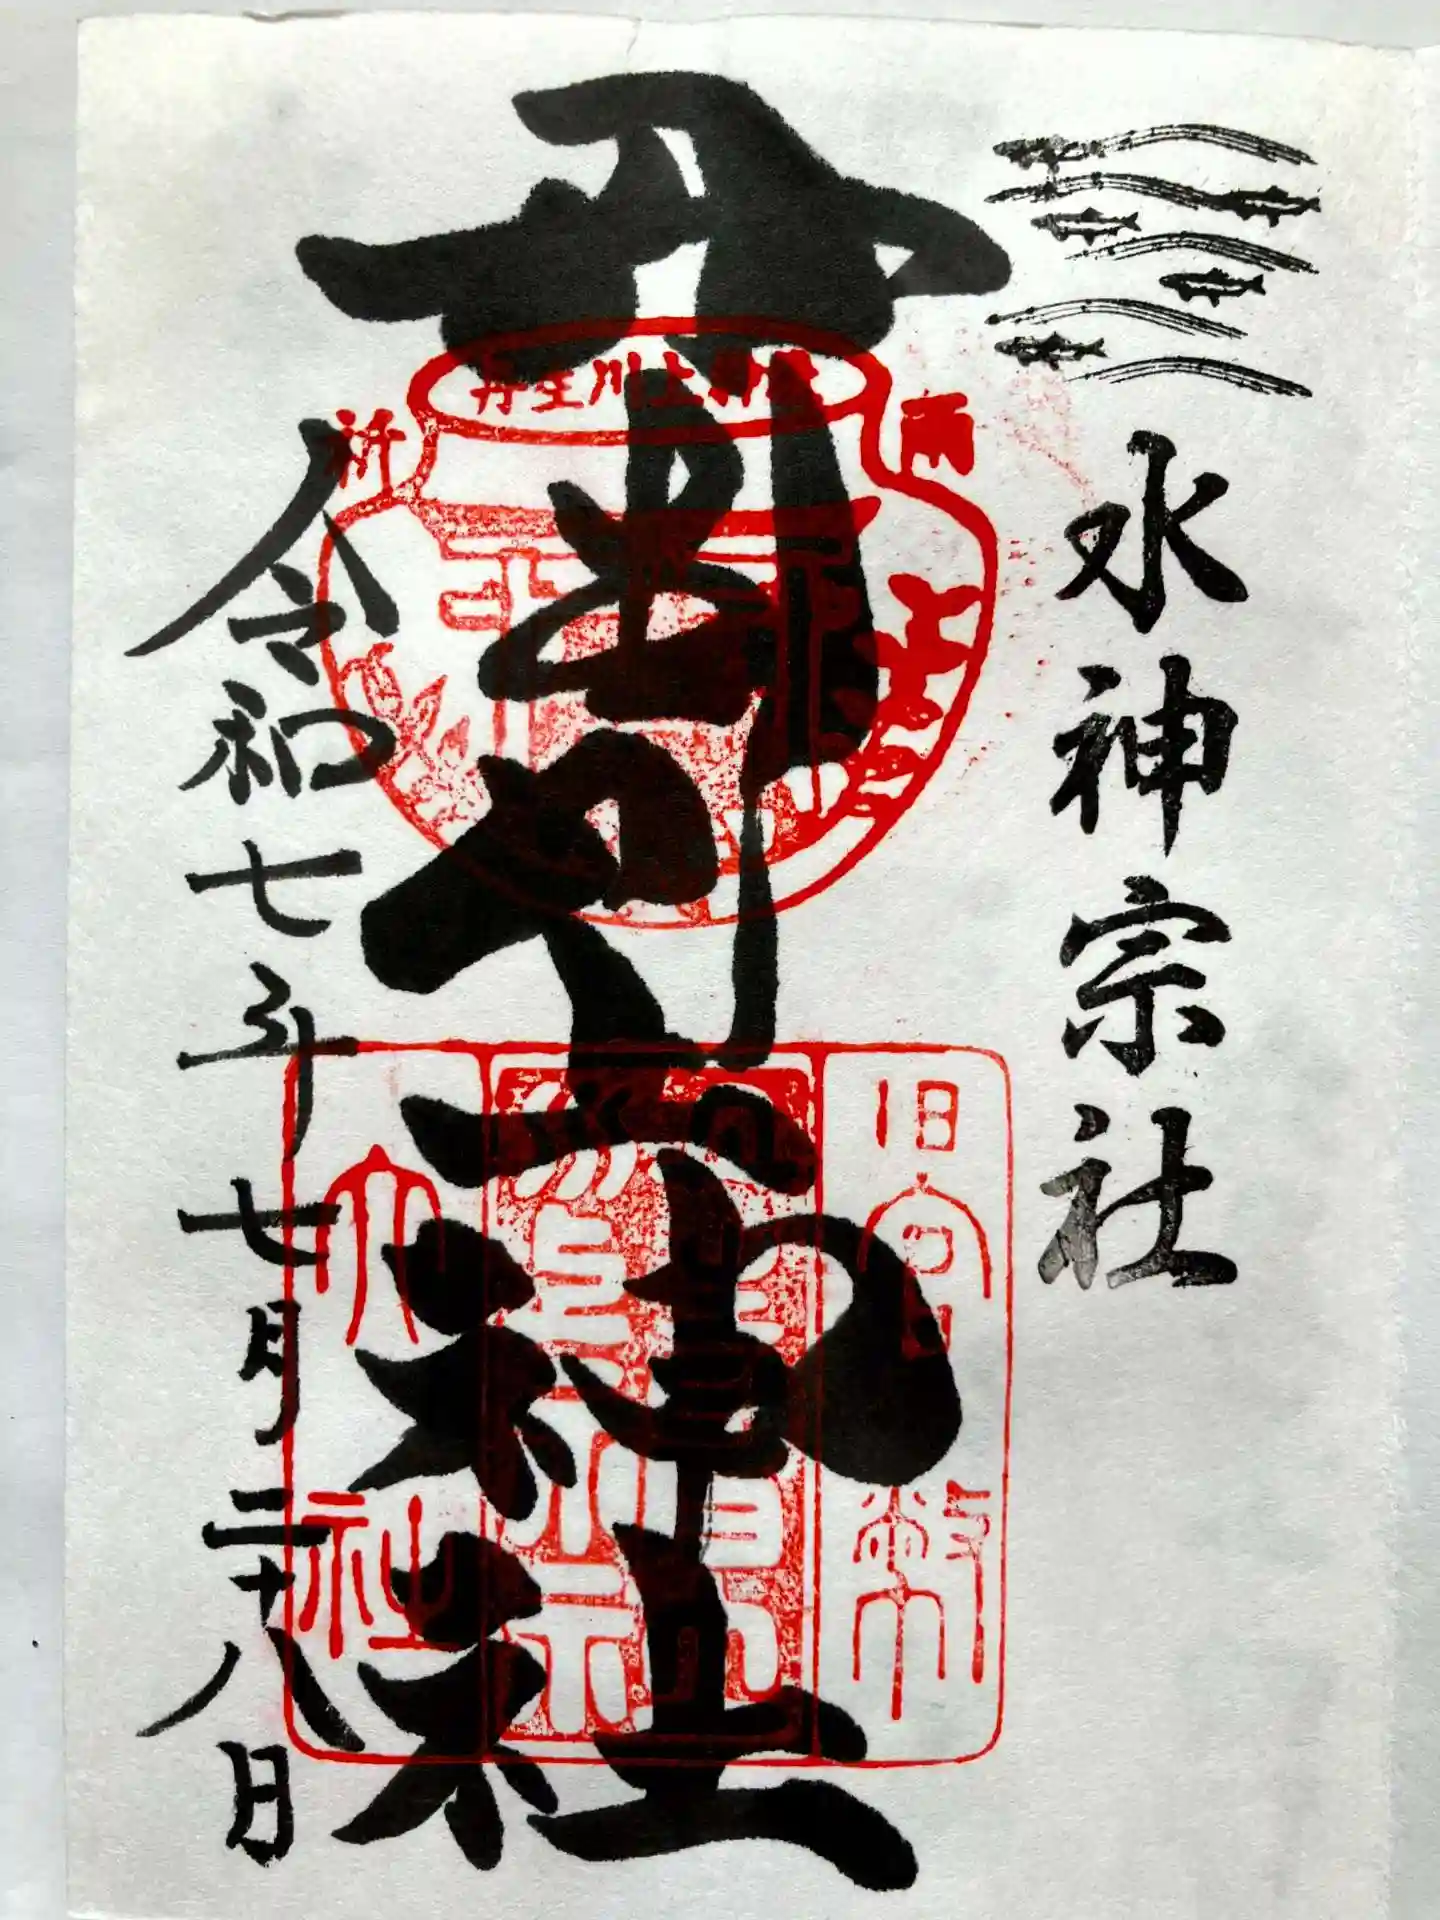 水神宗社
丹生川上神社
令和七年七月二十八日
丹生川上神社
祈雨
旧官幣
大社